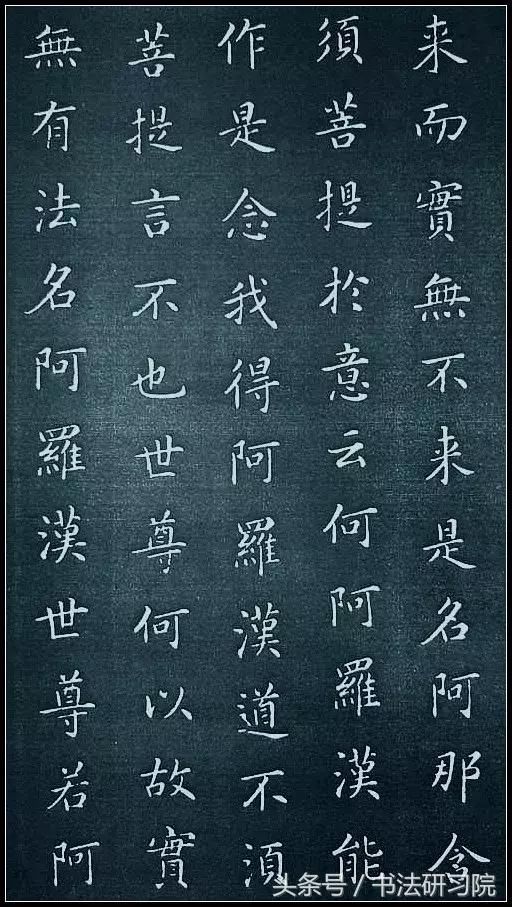 来而實無不来是名阿那含
須菩提於意云何阿羅漢能
作是念我得阿羅漢道不須
菩提言不也世尊何以故實
無有法名阿羅漢世尊若阿
头条号／书法研习院